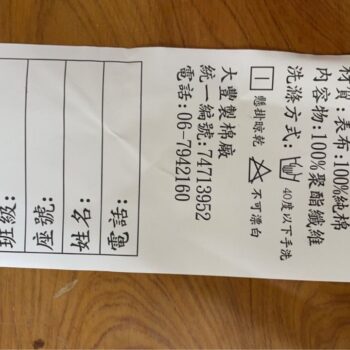 材質:表布:100%純棉
內容物:100%聚酯纖維
洗滌方式: 40度以下手洗
懸掛晾乾 不可漂白
大豐製棉廠
統一編號:74713952
電話:06-7942160
班級:
座號:
姓名:
電話: